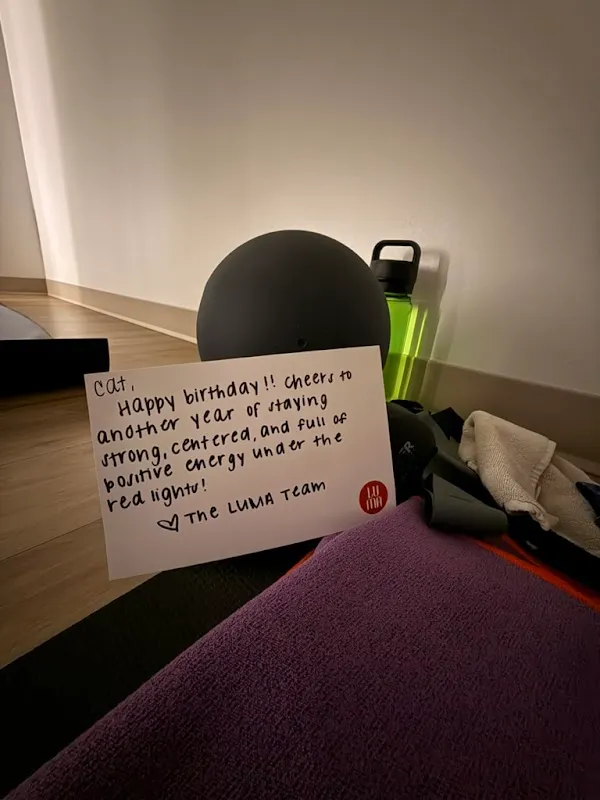 cat,
Happy birthday!! Cheers to
another year of staying
strong, centered, and full of
positive energy under the
red lights!
♡ The LUMA Team
LU
MA